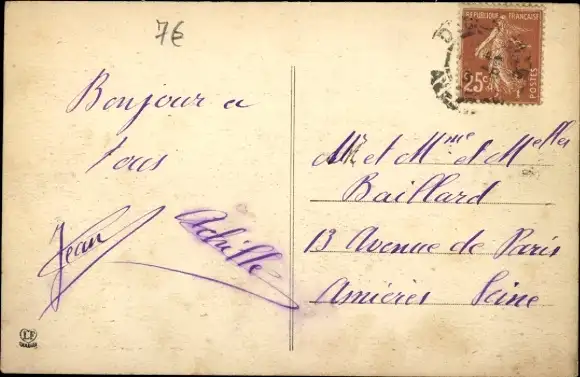 7€
Bonjour a
tous
Jean Achille
RÉPUBLIQUE FRANÇAISE
25c
POSTES
Mr et Mme et Melles
Baillard
13 Avenue de Paris
Asnières Seine